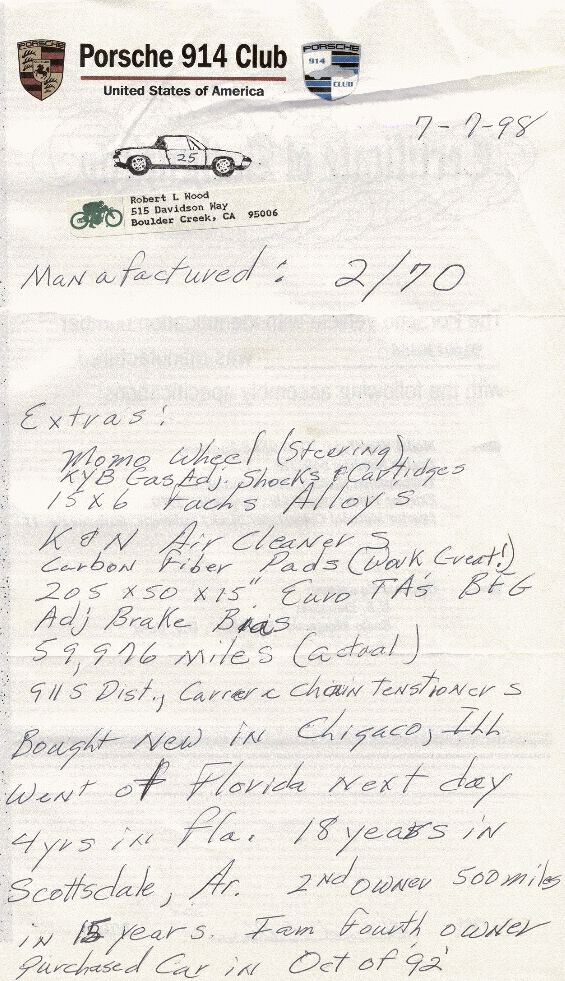 PORSCHE
Porsche 914 Club
United States of America
PORSCHE
914
CLUB
7-7-98
25
Robert L Wood
515 Davidson Way
Boulder Creek, CA 95006
Manufactured: 2/70
Extras:
Momo Wheel (Steering)
KYB Gas, Adj. Shocks & Cartidges
15 x 6 Fuchs Alloy's
K & N Air Cleaners
Carbon Fiber Pads (Work Great!)
205 x 50 x 15" Euro TA's BFG
Adj Brake Bias
59,976 miles (actual)
911S Dist., Carrera Chain Tenstioners
Bought New in Chigaco, Ill
Went of Florida next day
4 yrs in Fla. 18 years in
Scottsdale, Ar. 2nd owner 500 miles
in 15 years. I am Fourth owner
purchased Car in Oct of 92'